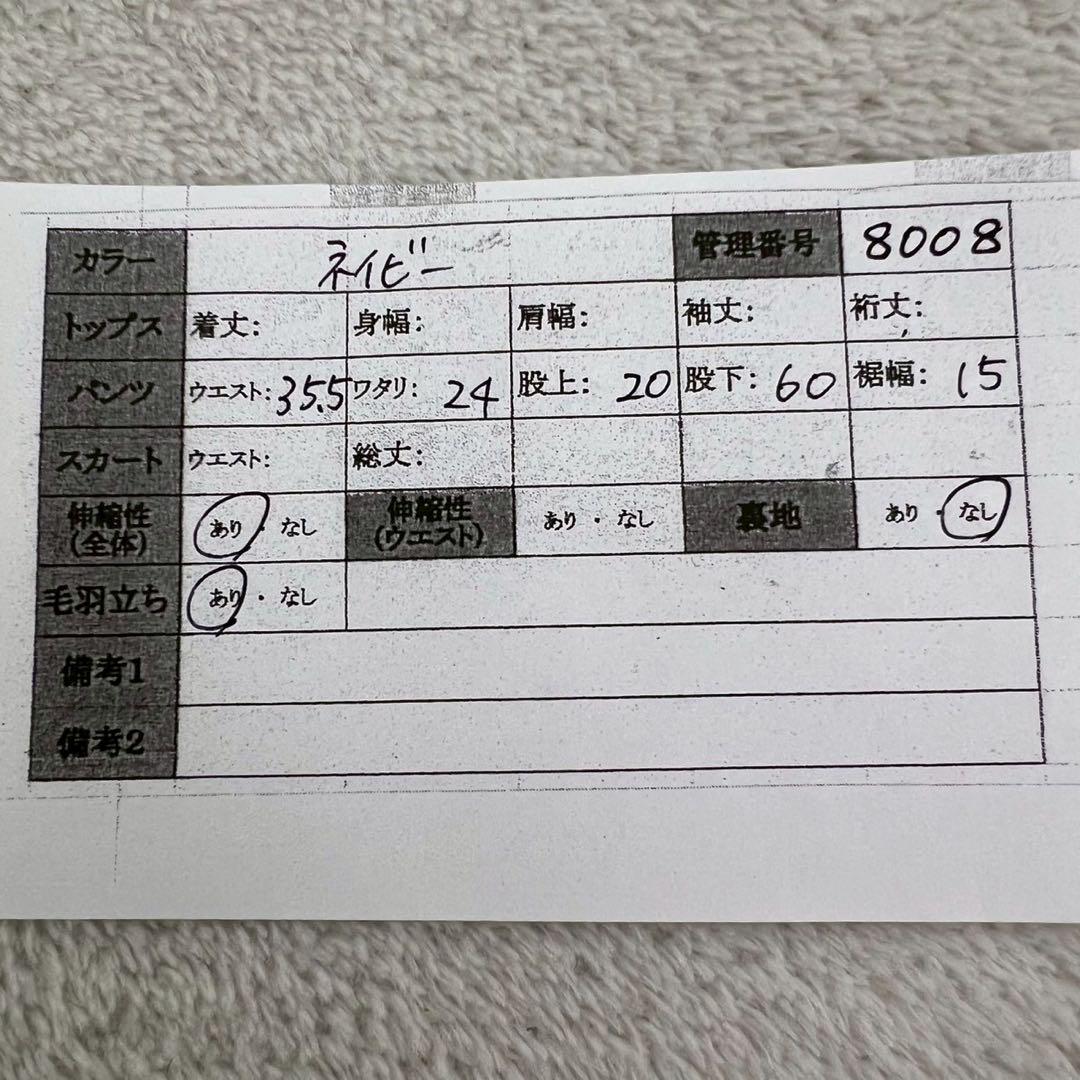 カラー ネイビー 管理番号 8008
トップス 着丈: 身幅: 肩幅: 袖丈: 裄丈:
パンツ ウエスト: 35.5 ワタリ: 24 股上: 20 股下: 60 裾幅: 15
スカート ウエスト: 総丈:
伸縮性 (全体) あり ・ なし 伸縮性 (ウエスト) あり ・ なし 裏地 あり ・ なし
毛羽立ち あり ・ なし
備考1
備考2